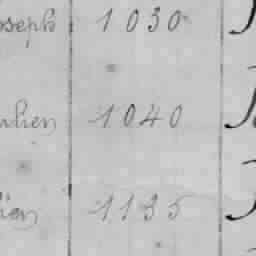 oseph 1030
ulien 1040
lien 1135